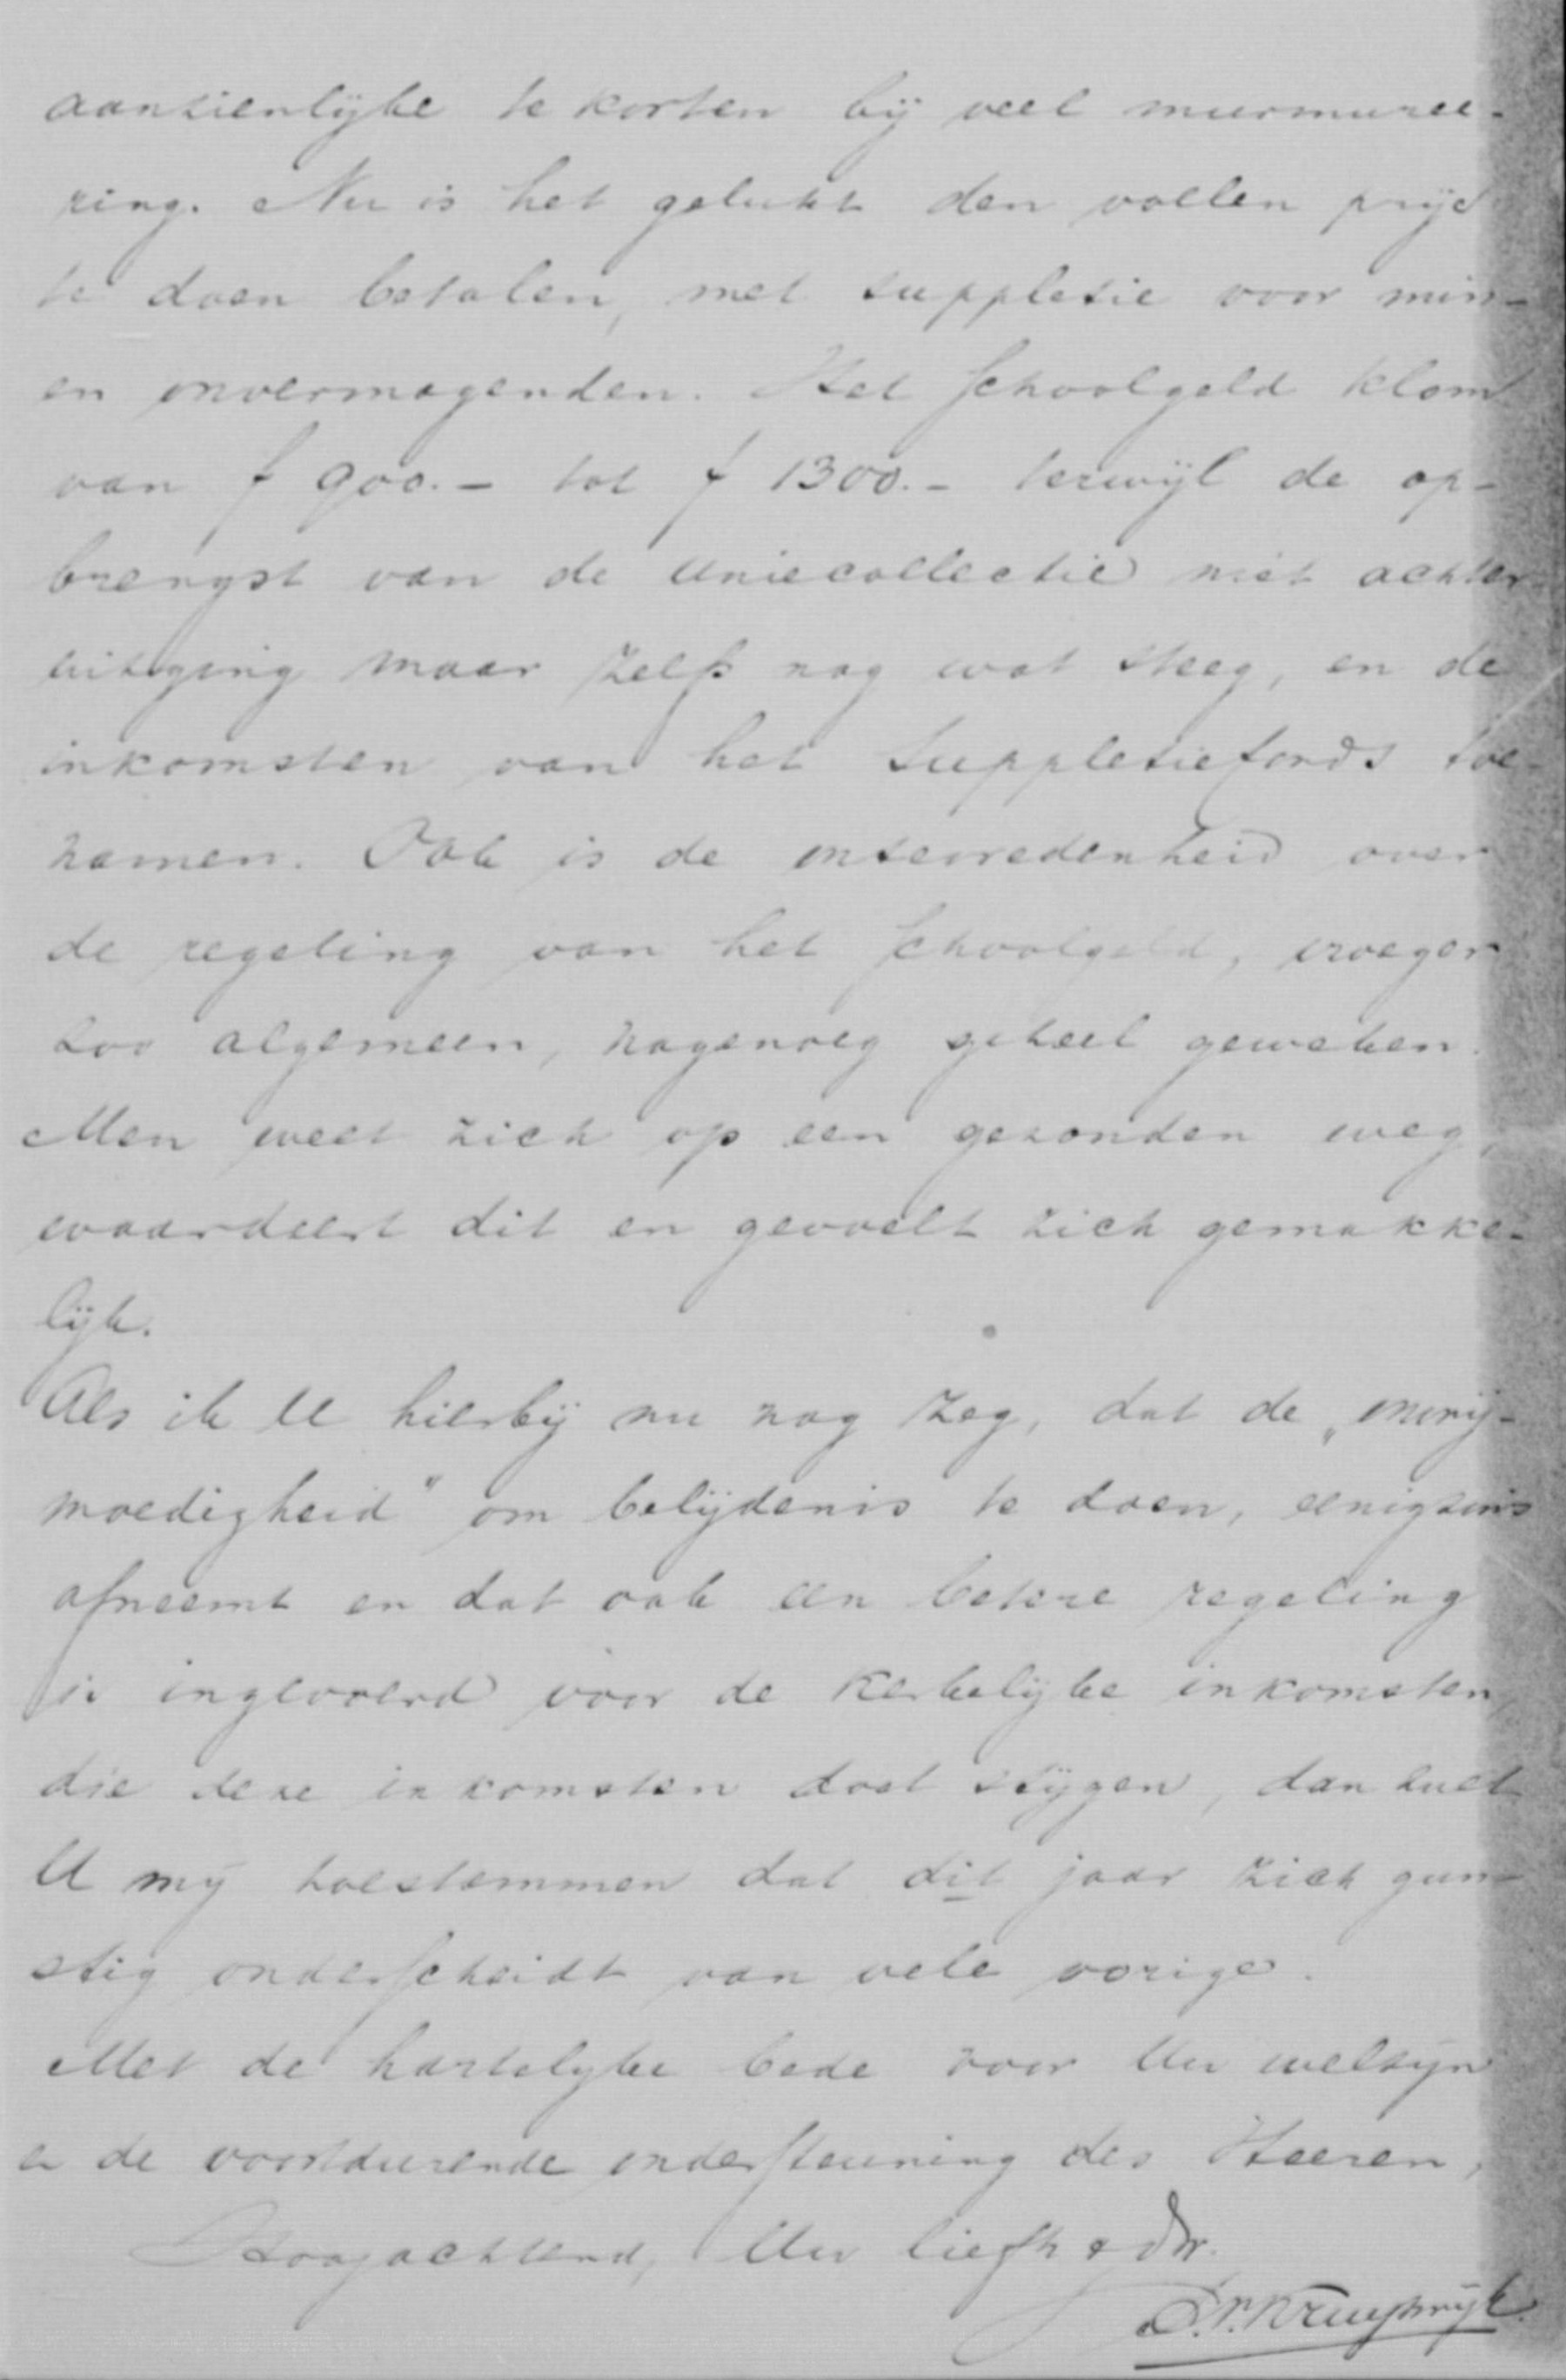 aanzienlijke te korten bij veel murmuree-
ring. Nu is het gelukt den vollen prijs
te doen betalen, met suppletie voor min-
en onvermogenden. Het schoolgeld klom
van f 900.- tot f 1300.- terwijl de op-
brengst van de Uniecollectie niet achter
uitging maar zelfs nog wat steeg, en de
inkomsten van het Suppletiefonds toe-
namen. Ook is de ontevredenheid over
de regeling van het schoolgeld, vroeger
zoo algemeen, nagenoeg geheel geweken.
Men weet zich op een gezonden weg,
waardeert dit en gevoelt zich gemakke-
lijk.
Als ik U hierbij nu nog zeg, dat de „onvrij-
moedigheid" om belijdenis te doen, eenigzins
afneemt en dat ook een betere regeling
is ingevoerd voor de kerkelijke inkomsten
die deze inkomsten doet stijgen, dan zult
U mij toestemmen dat dit jaar zich gun-
stig onderscheidt van vele vorige.
Met de hartelijke bede voor Uw welzijn
en de voortdurende ondersteuning des Heeren,
Hoogachtend, Uw liefh & Dr.